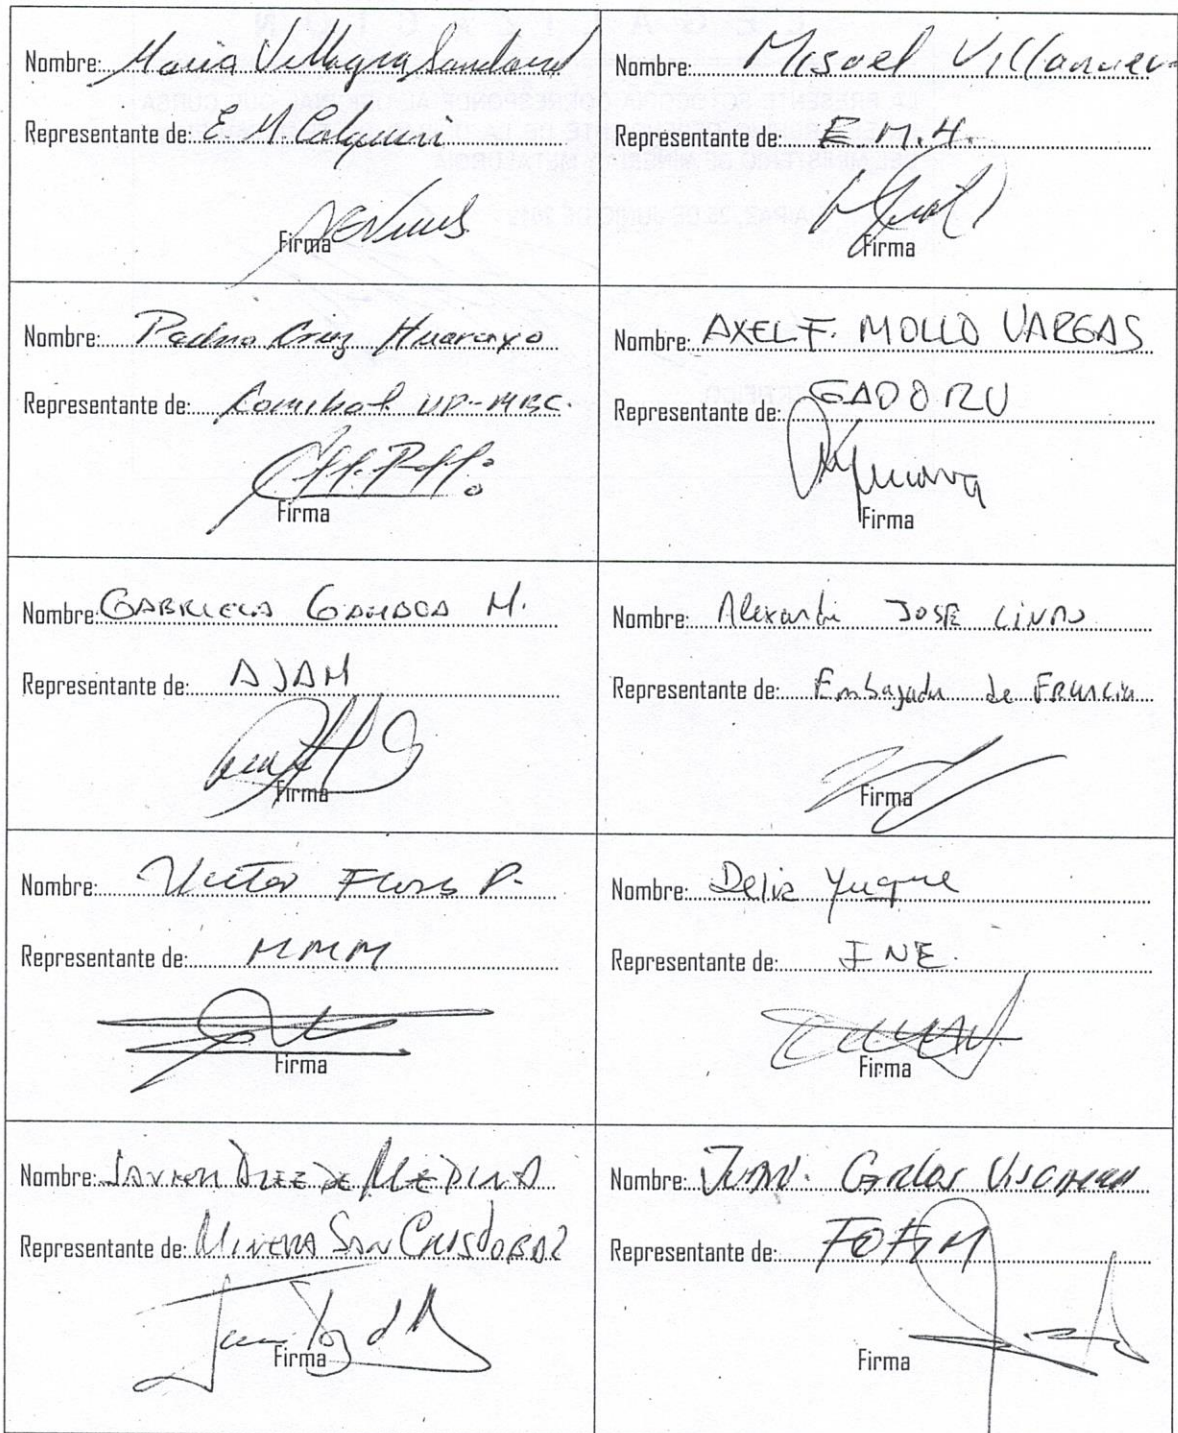 Nombre: Maria Villagra Sandoval
Representante de: E.M. Colquiri
Firma
Nombre: Misael Villanueva
Representante de: E.M.H.
Firma
Nombre: Cruz Huarayo
Representante de: Comibol UP-MBC.
Firma
Nombre: AXEL F. MOLLO VARGAS
Representante de: GADORU
Firma
Nombre: GABRIELA GAMBOA M.
Representante de: AJAM
Firma
Nombre: JOSÉ
Representante de: Embajada de Francia
Firma
Nombre: Victor Flores P.
Representante de: MMM
Firma
Nombre: Delia Yuque
Representante de: INE.
Firma
Nombre: JAVIER DIEZ DE MEDINA
Representante de: MINERA SAN CRISTOBAL
Firma
Nombre: JUAN Carlos
Representante de: FOFIM
Firma